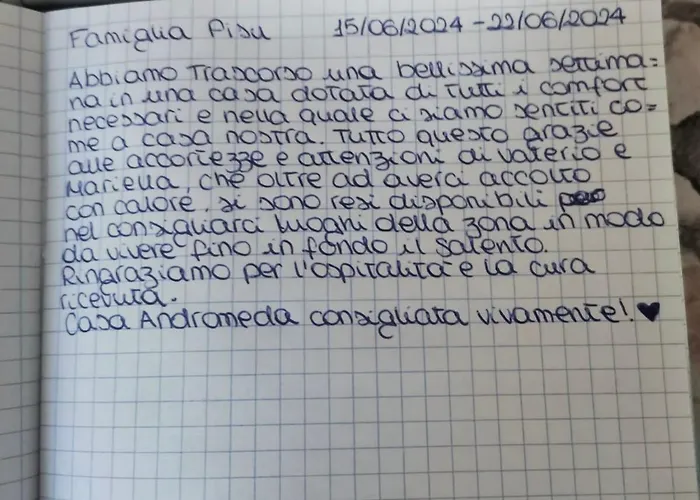 Famiglia Pisu 15/06/2024 - 22/06/2024
Abbiamo trascorso una bellissima settima=
na in una casa dotata di tutti i comfort
necessari e nella quale ci siamo sentiti co=
me a casa nostra. Tutto questo grazie
alle accortezze e attenzioni di Valerio e
Mariella, che oltre ad averci accolto
con calore, si sono resi disponibili
nel consigliarci luoghi della zona in modo
da vivere fino in fondo il Salento.
Ringraziamo per l'ospitalità e la cura
ricevuta.
Casa Andromeda consigliata vivamente! ♥